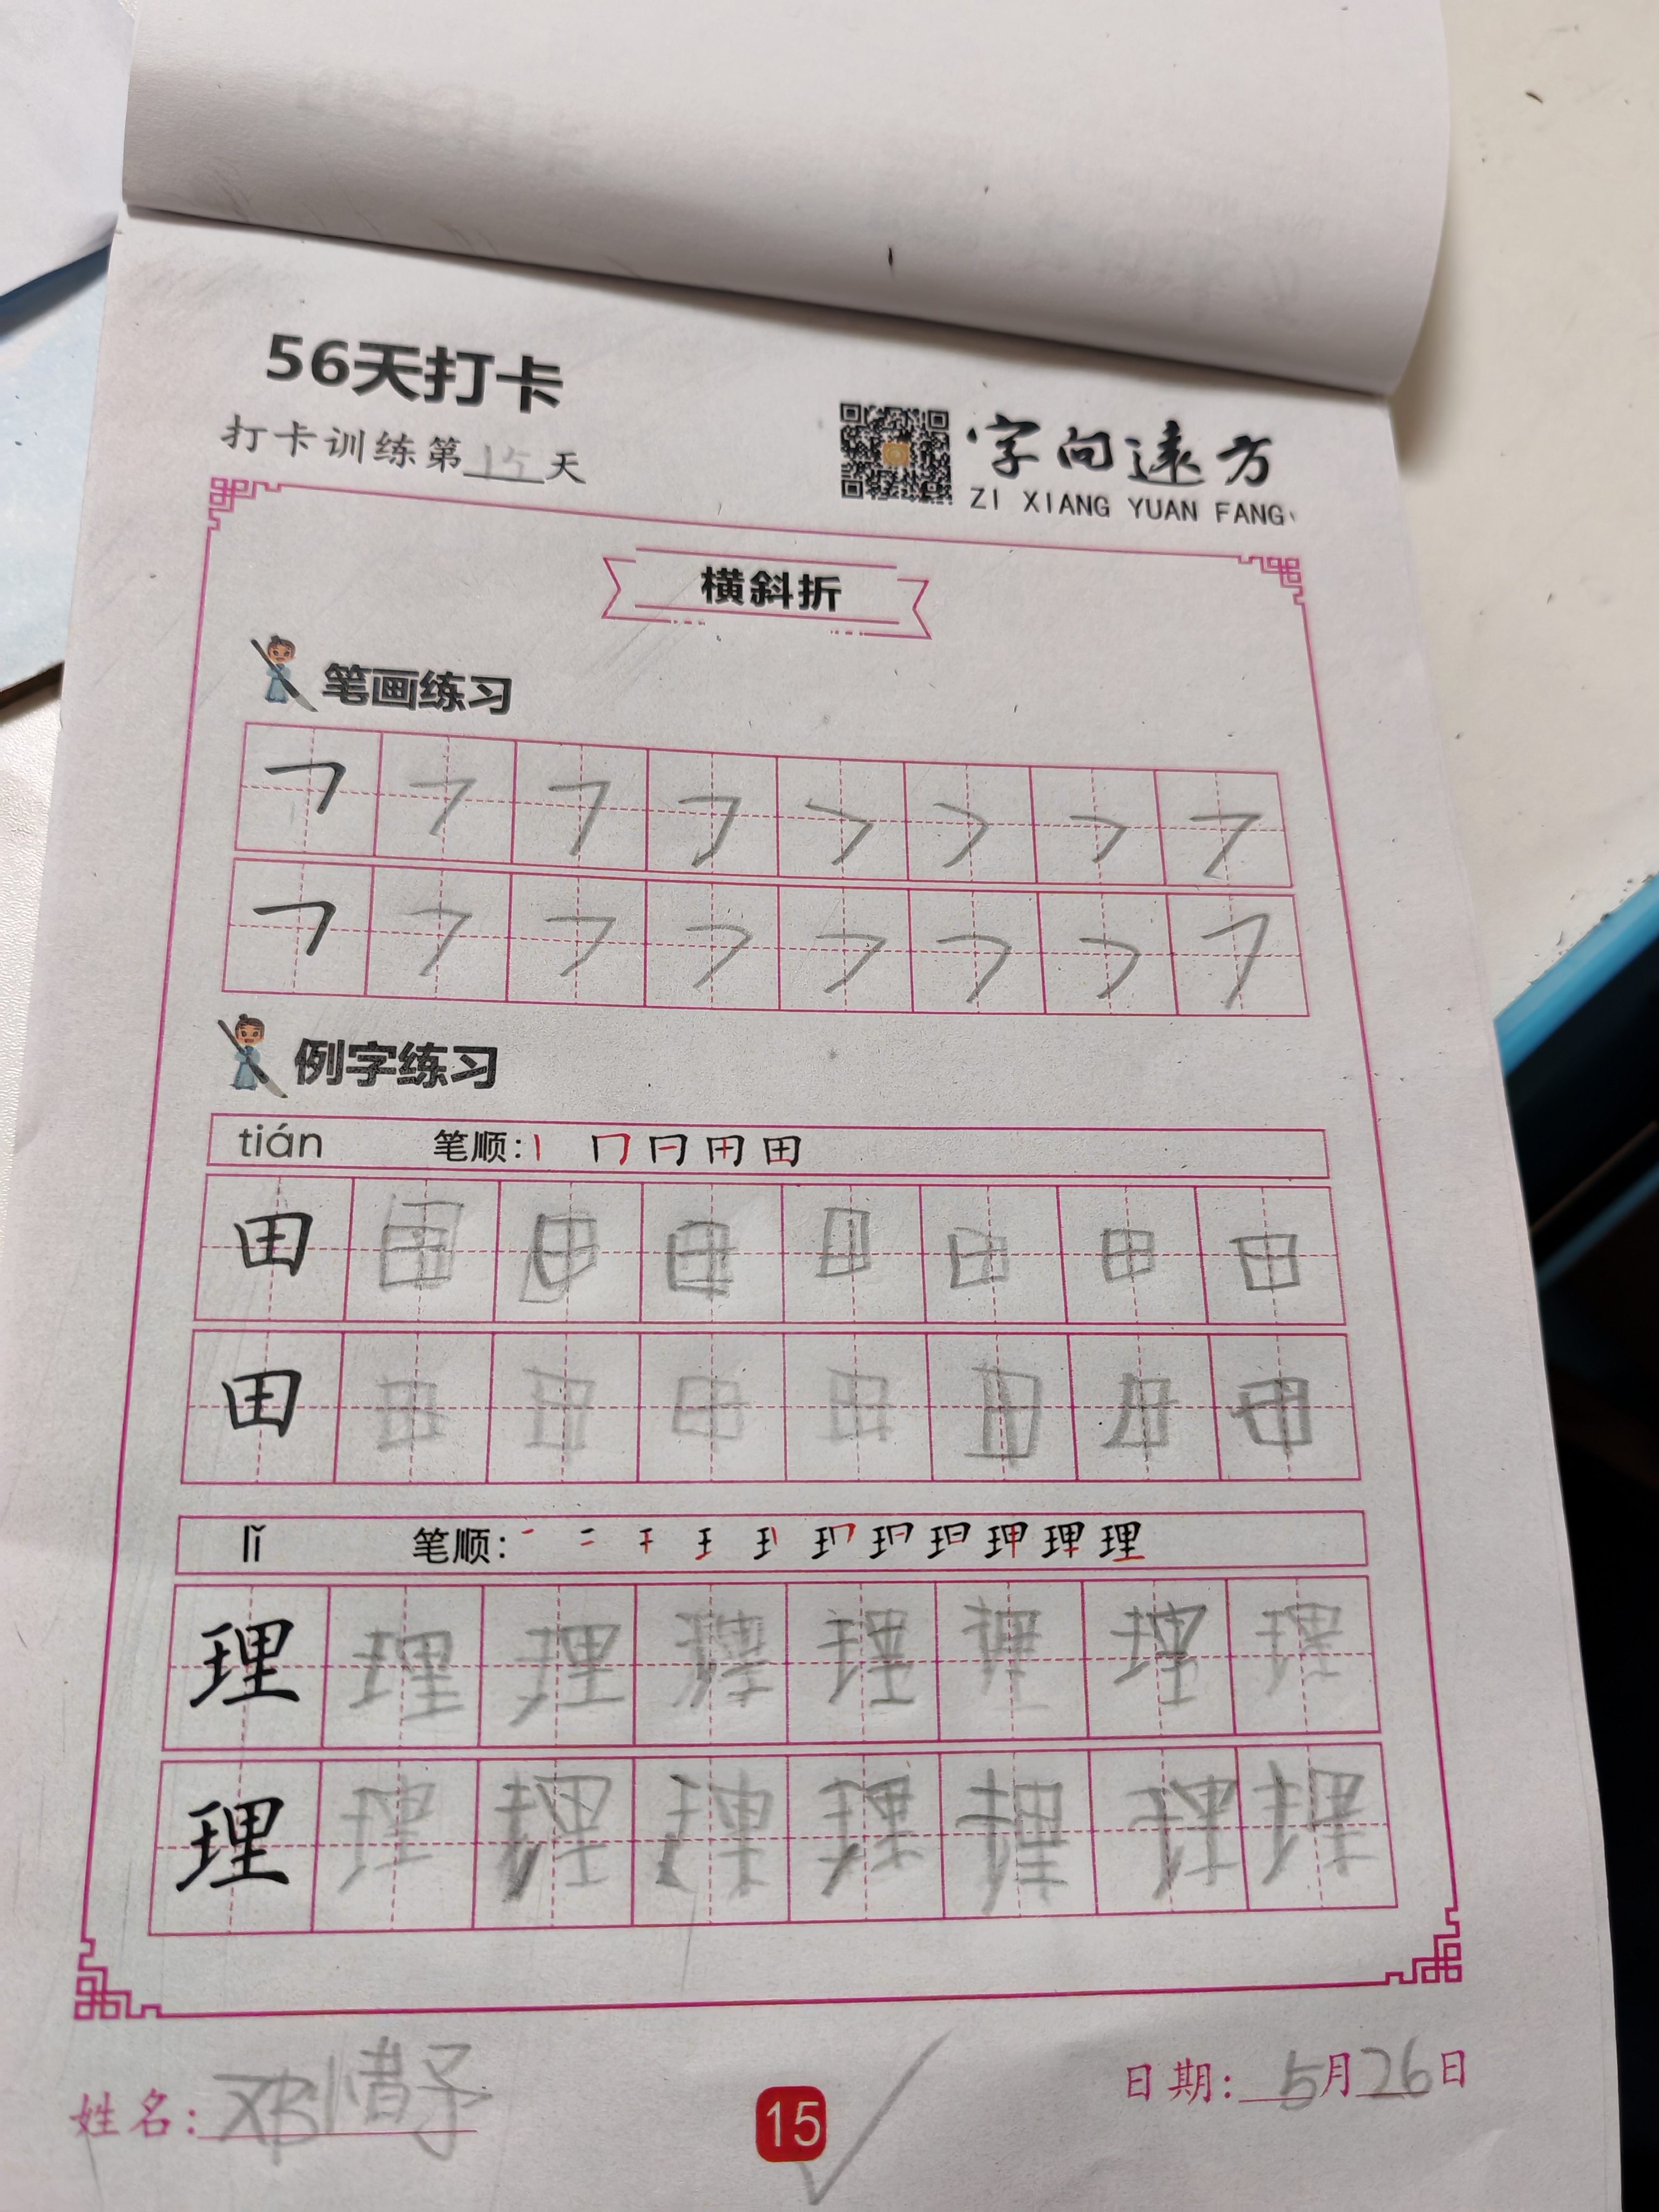 56天打卡
打卡训练第15天
字向远方
ZI XIANG YUAN FANG
横斜折
笔画练习
㇇ ㇇ ㇇ ㇇ ㇇ ㇇ ㇇ ㇇
㇇ ㇇ ㇇ ㇇ ㇇ ㇇ ㇇ ㇇
例字练习
tián 笔顺: 田
田 田 田 田 田 田 田 田
田 田 田 田 田 田 田 田
lǐ 笔顺: 理
理 理 理 理 理 理 理 理
理 理 理 理 理 理 理 理
姓名: 邓惜予
15
日期: 5月26日